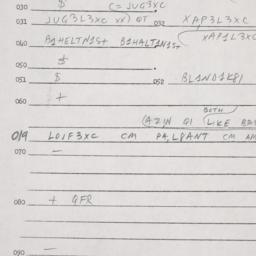 030 $ C= JUG3XC
031 JUG3L3XC XX) OT 032 XAP3L3XC
XAP1L3XC
040 B1HELTN1S+ B1HALTN1S+
050 $
051 $ 052 BLAND1K81
060 +
BOTH
(AZ)N GI (LIKE
019 LOJF3XC CM PALPANT CM AM
070 -
080 + GFR
090 -